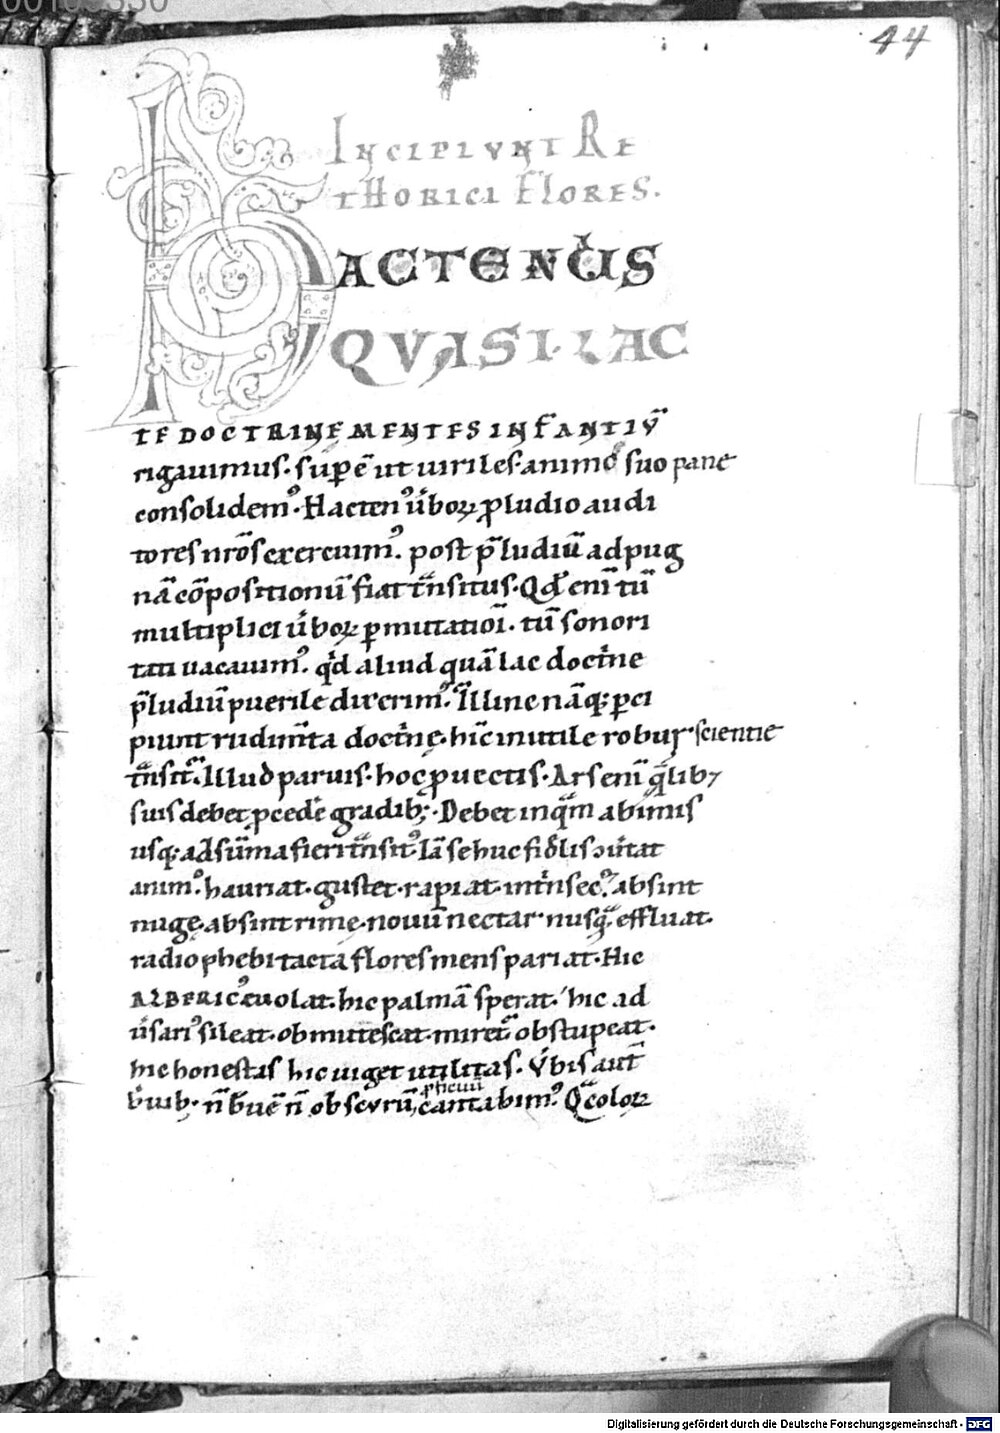 00109330
44
INCIPIVNT RE
THORICI FLORES.
HACTENUS
QVASI·LAC
TE DOCTRINE MENTES INFANTIV̅
rigauimus· sup̱ e̅ ut uiriles·animo suo pane
consolidem᾽· Hacten᾽ u̅boꝝ p̄ludio audi
tores nr̅os exercuim᾽. post p̄ludiu̅ ad pug
na̅ co̅positionu̅ fiat tn̅situs· Qd̅ eni̅ tu̅
multiplici u̅boꝝ ꝑmutatioi̅. tu̅ sonori
tati uacauim᾽. qͥd aliud qua̅ lac doctͥne
p̄ludiu̅ puerile dixerim᾽. Illinc na̅qꝫ ꝑci
piunt rudim̅ta doctͥnę· hic̅ inutile robur scientie
tn̅sit᾽. Illud paruis· hoc ꝓuectis· Ars eni̅ q̅lib⁊
suis debet p̱cedeˉ gradibꝫ· Debet inqͣm ab imis
usqꝫ ad su̅ma fieri tn̅sit᾽ Ia̅ se huc fid̅lis ɔuͥtat
anim᾽· hauriat· gustet· rapiat· intͥnsec᾽· absint
nugę· absint rimę· nouu̅ nectar nusqͣ effluat·
radio phebi tacta flores mens pariat· Hic
ALBERIC᾽ euolat· hic palma̅ sperat· hic ad
u̅sari᾽ sileat· obmutescat· miret᷑ obstupeat·
hic honestas hic uiget utilitas· Vͥbis aut̅
b̅uib· n̅ b̅ue̅ n̅ obscuru̅ cantabim᾽· Qͣ coloꝝ
Digitalisierung gefördert durch die Deutsche Forschungsgemeinschaft - DFG